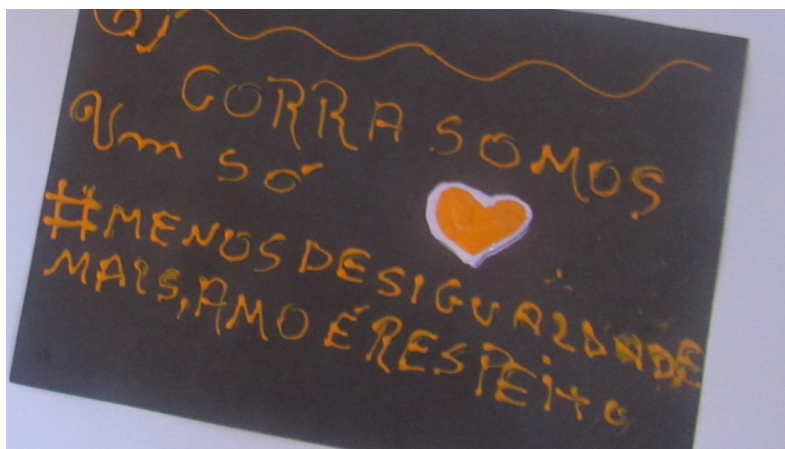 CORRA SOMOS
Um só
#MENOS DESIGUALDADE
MAIS, AMO É RESPEITO